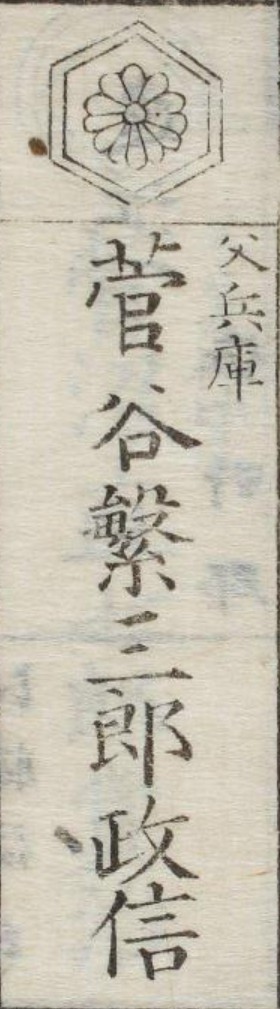 父兵庫
菅谷繁三郎政信